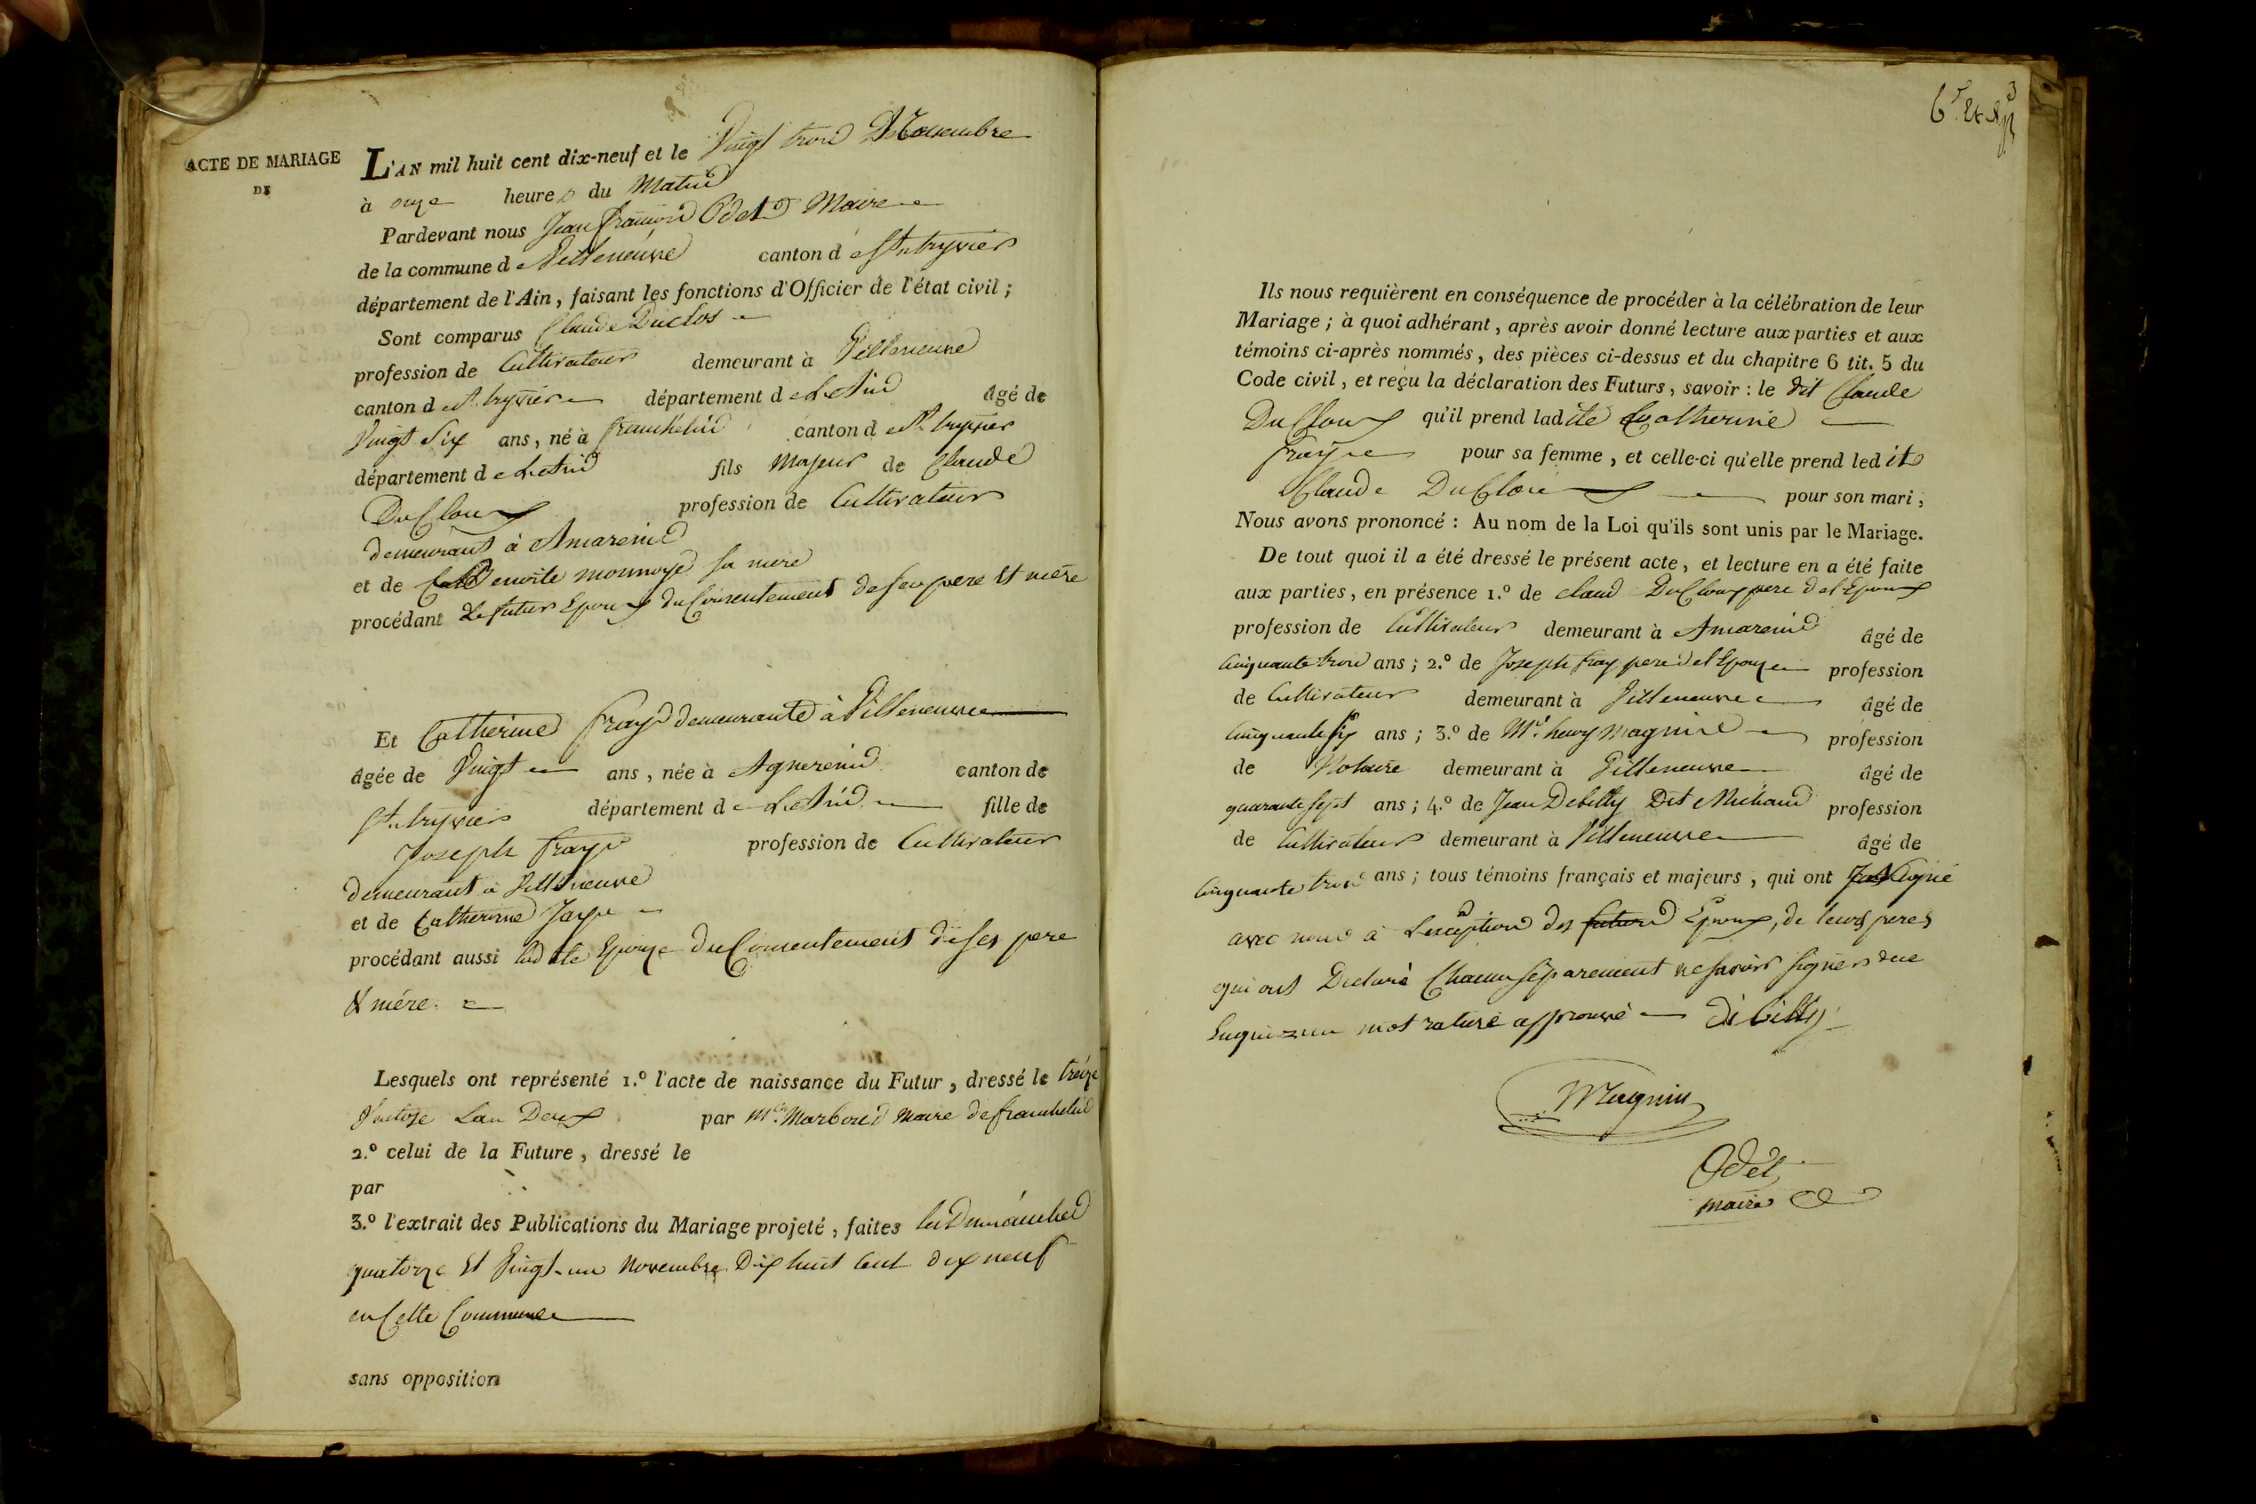 ACTE DE MARIAGE
DE
L'AN mil huit cent dix-neuf et le Vingt trois Novembre
à onze heures du Matin
Pardevant nous Jean françois Odet Maire
de la commune de Villeneuve canton de St. tryvier
département de l'Ain, faisant les fonctions d'Officier de l'état civil;
Sont comparus Claude Duclos
profession de Cultivateur demeurant à Villeneuve
canton de St. tryvier département de L'Ain âgé de
Vingt Six ans, né à francheleins canton de St. tryvier
département de L'Ain fils Majeur de Claude
DuCloux profession de Cultivateur
demeurant à Amareins
et de Benoite monnoye sa mere
procédant Le futur Epoux du Consentement de ses pere et mère
Et Catherine fraye demeurante à Villeneuve
âgée de Vingt ans, née à Agnereins canton de
St. tryvier département de L'Ain fille de
Joseph fraye profession de Cultivateur
demeurant à Villeneuve
et de Catherine Jaye
procédant aussi ladite Epouze du Consentement de ses pere
& mére
Lesquels ont représenté 1.º l'acte de naissance du Futur, dressé le treize
Ventose Lan Deux par Mr. Marbon Maire de francheleins
2.º celui de la Future, dressé le
par
3.º l'extrait des Publications du Mariage projeté, faites les Dimanches
quatorze et Vingt-un Novembre Dix huit Cent dix neuf
en Cette Commune
sans opposition
Ils nous requièrent en conséquence de procéder à la célébration de leur
Mariage; à quoi adhérant, après avoir donné lecture aux parties et aux
témoins ci-après nommés, des pièces ci-dessus et du chapitre 6 tit. 5 du
Code civil, et reçu la déclaration des Futurs, savoir: le dit Claude
DuCloux qu'il prend ladite Catherine
fraye pour sa femme, et celle-ci qu'elle prend ledit
Claude DuCloux pour son mari;
Nous avons prononcé: Au nom de la Loi qu'ils sont unis par le Mariage.
De tout quoi il a été dressé le présent acte, et lecture en a été faite
aux parties, en présence 1.º de claud DuCloux pere de l'Epoux
profession de Cultivateur demeurant à Amareins âgé de
Cinquante trois ans; 2.º de Joseph fray pere de l'Epouze profession
de Cultivateur demeurant à Villeneuve âgé de
Cinquante six ans; 3.º de Mr. henry Magnin profession
de Notaire demeurant à Villeneuve âgé de
quarante sept ans; 4.º de Jean Debilly Dit Michaud profession
de Cultivateur demeurant à Villeneuve âgé de
Cinquante trois ans; tous témoins français et majeurs, qui ont signé
avec nous à L'exception des futurs Epoux, de leurs peres
qui ont Declaré Chacun séparement ne savoir signer de ce
Enquis un mot raturé approuvé debilly
Magnin
Odet
maire